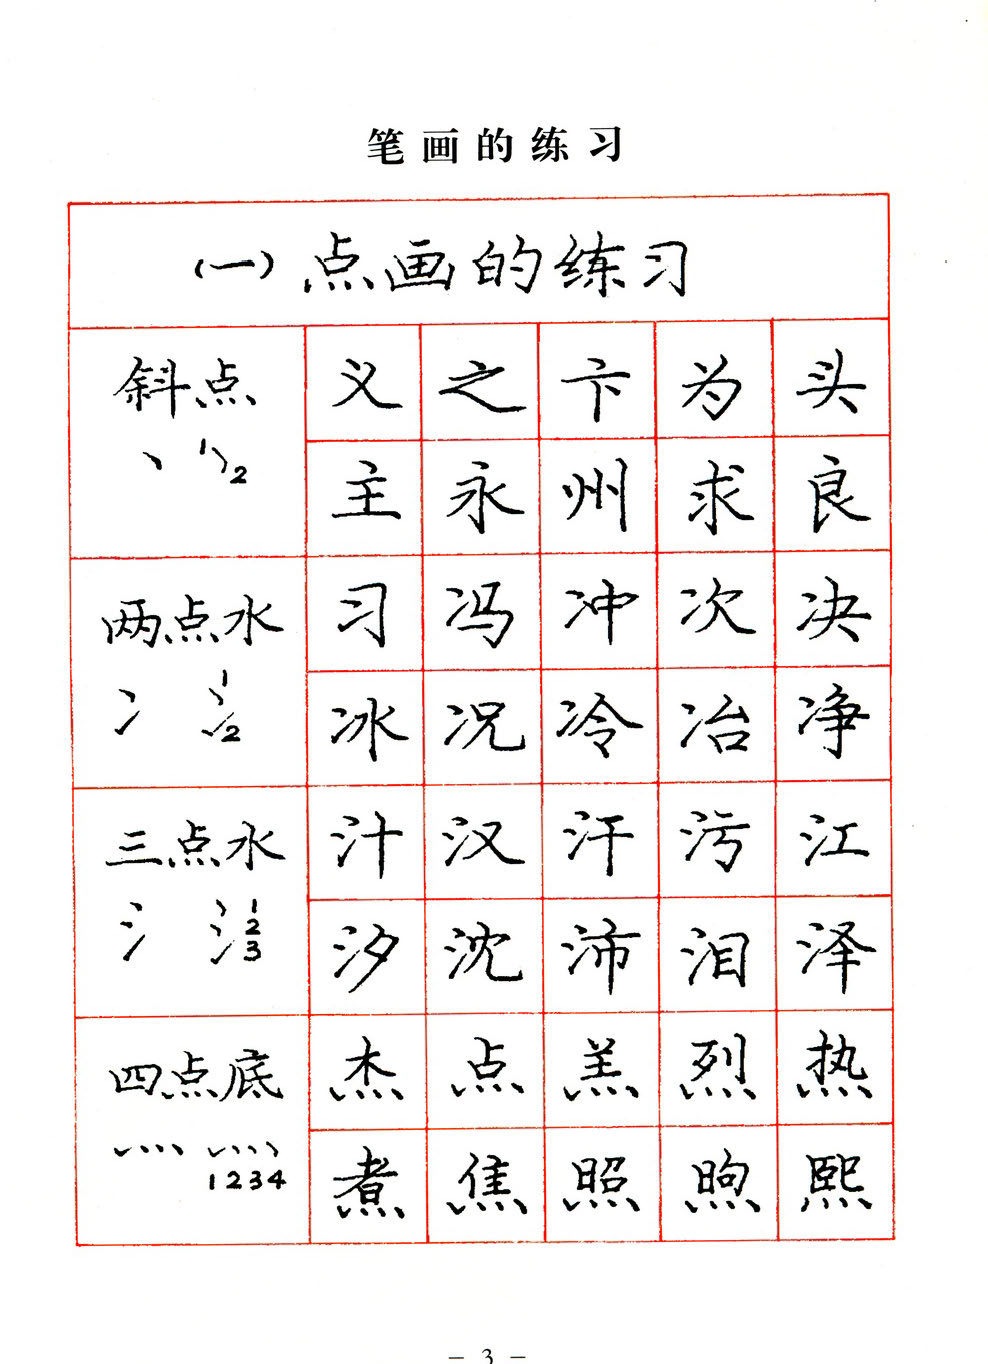 笔画的练习
(一)点画的练习
斜点
丶 1 2
义 之 卞 为 头
主 永 州 求 良
两点水
冫 1 2
习 冯 冲 次 决
冰 况 冷 冶 净
三点水
氵 1 2 3
汁 汉 汗 污 江
汐 沈 沛 泪 泽
四点底
灬 1234
杰 点 羔 烈 热
煮 焦 照 煦 熙
— 3 —